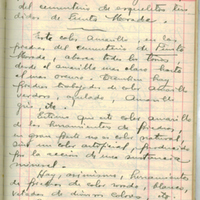 del cementerio de arquelitos
de Punta Morada.
Este color Amarillo, en las
piedras del cementerio de Punta
Morada, abarca todos los tonos,
desde el amarillo mas claro hasta
el mas oscuro. Tambien hay
piedras trabajadas de color Amarillo
verdoso, azulado, Amarillo
gris, etc.
Estimo que este color Amarillo
de los herramientos de piedra,
en gran parte no es color natural,
sinó un color artificial, producido
por la acción de una sustancia
mineral.
Hay, asimismo, herramientos
de piedras de color rosado, blanco,
de diversos colores, etc.